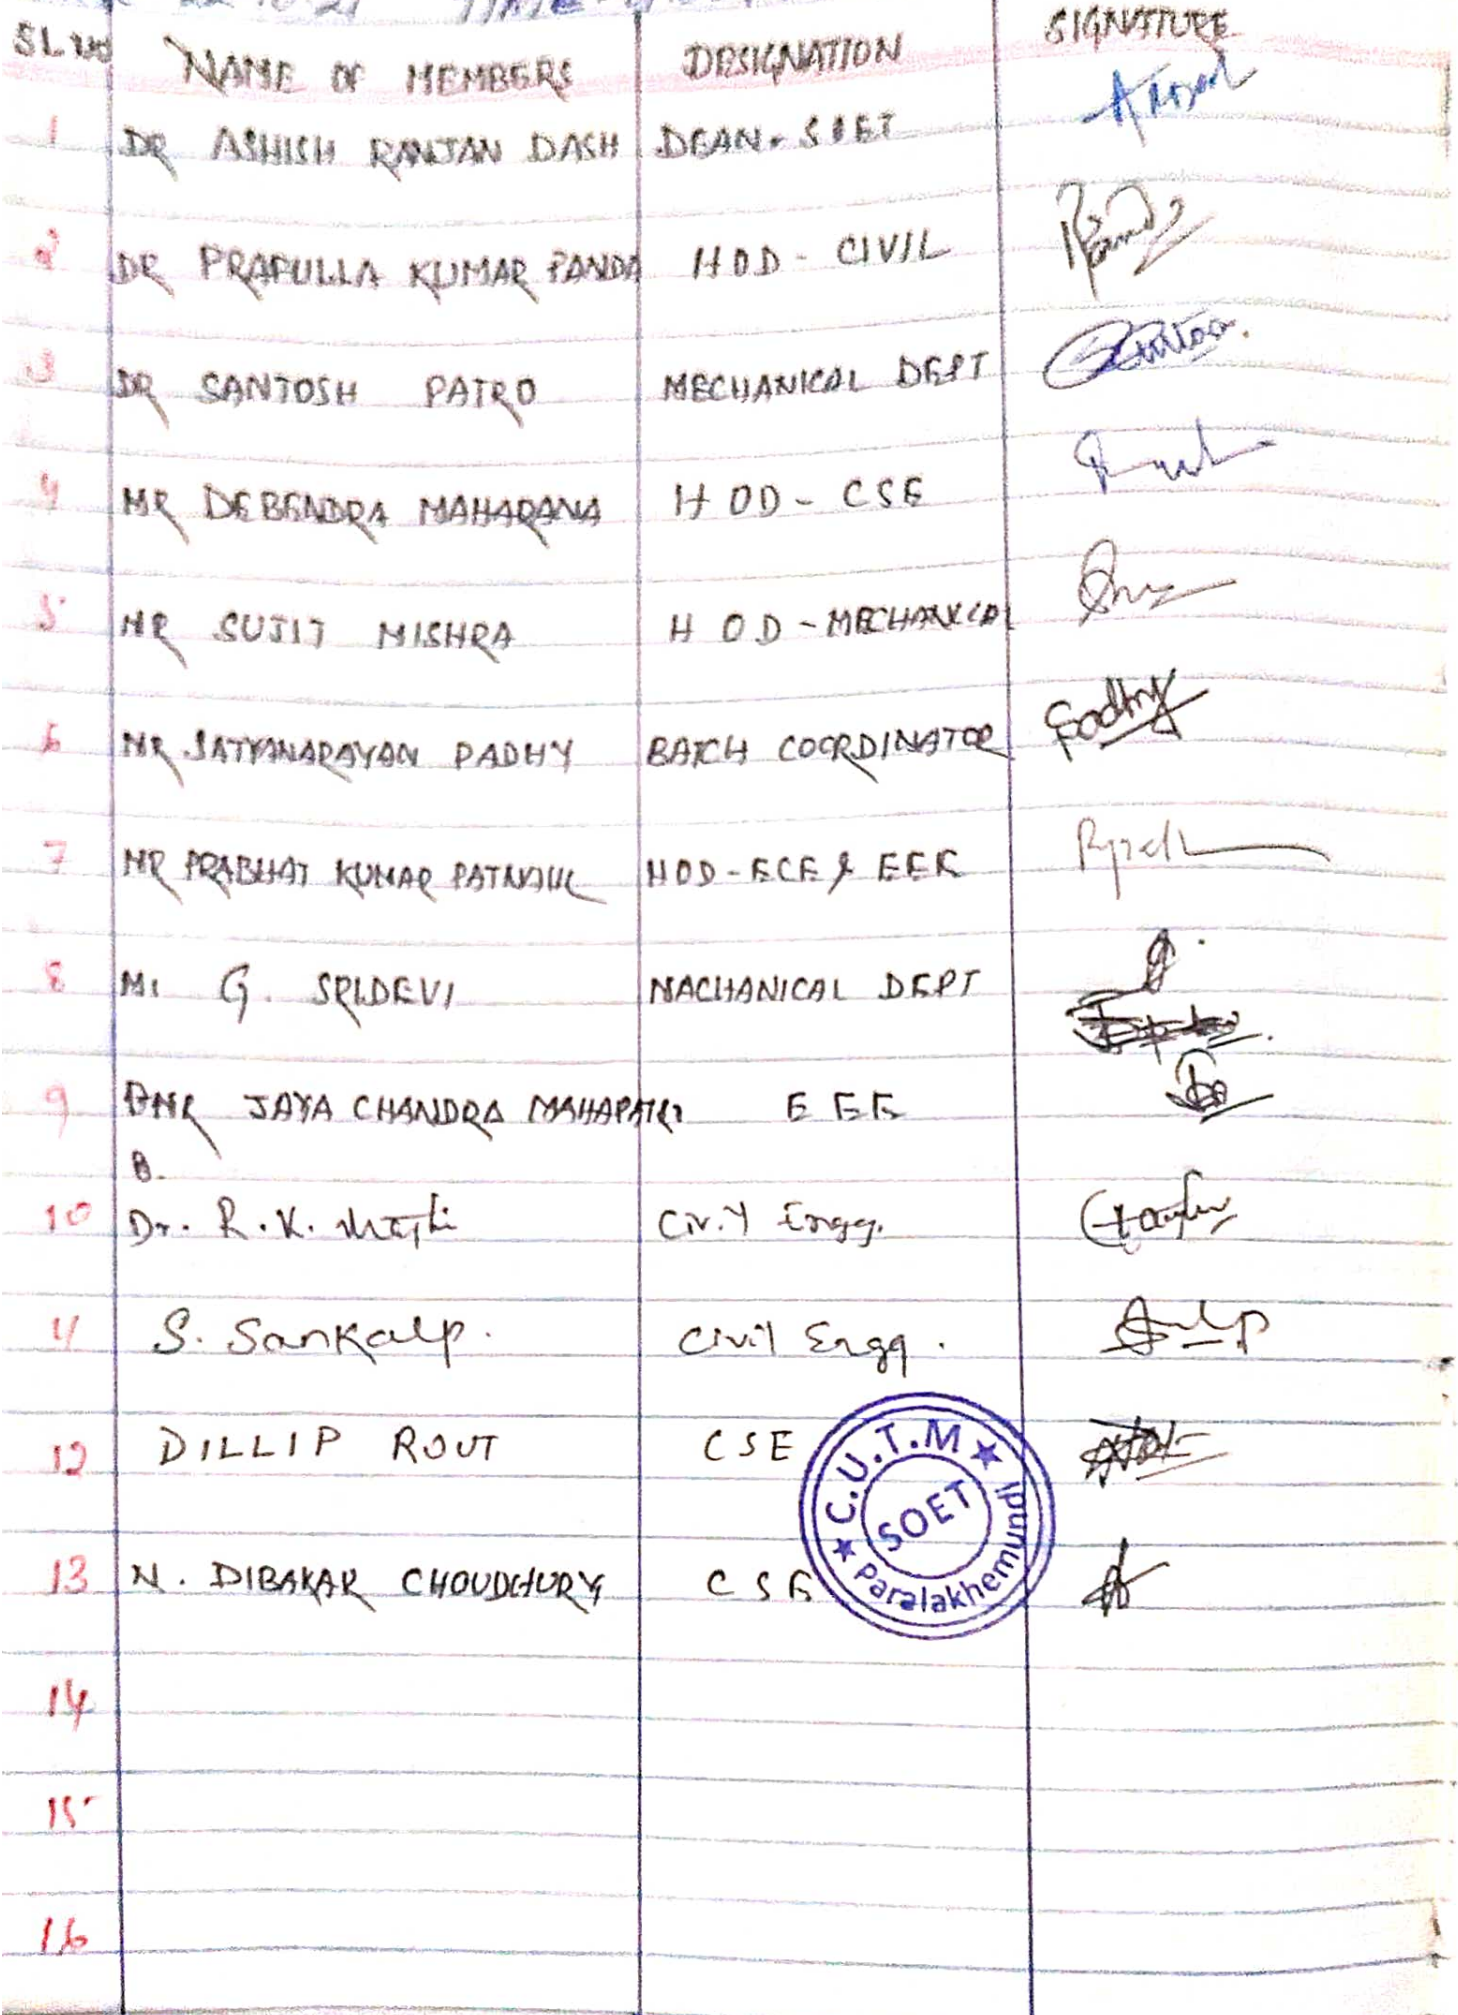 SL NO NAME OF MEMBERS DESIGNATION SIGNATURE
1 DR ASHISH RANJAN DASH DEAN. SOET
2 DR PRAFULLA KUMAR PANDA HOD - CIVIL
3 DR SANTOSH PATRO MECHANICAL DEPT
4 MR DEBENDRA MAHARANA HOD - CSE
5 MR SUJIT MISHRA HOD - MECHANICAL
6 MR SATYANARAYAN PADHY BATCH COORDINATOR Padhy
7 MR PRABHAT KUMAR PATNAIK HOD - ECE & EEE
8 G. SRIDEVI MACHANICAL DEPT
9 MR JAYA CHANDRA MAHAPATRO EEE
B.
10 Dr. R.K. Majhi Civil Engg.
11 S. Sankalp. Civil Engg.
12 DILLIP ROUT CSE
C.U.T.M
SOET
Paralakhemundi
13 N. DIBAKAR CHOUDHURY CSE
14
15
16